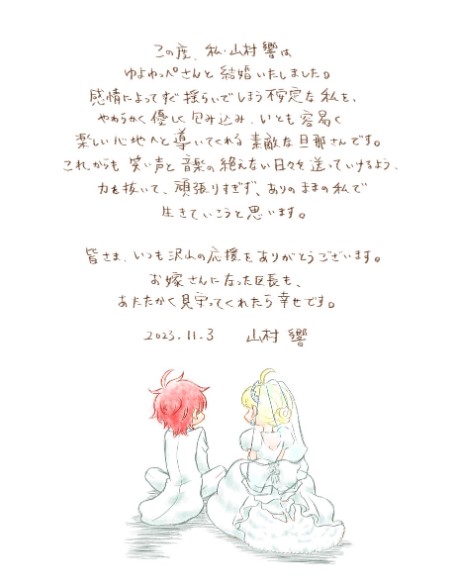 この度、私・山村響は
ゆよゆっぺさんと結婚いたしました。
感情によってすぐ揺らいでしまう不安定な私を、
やわらかく優しく包み込み、いとも容易く
楽しい心地へと導いてくれる素敵な旦那さんです。
これからも笑い声と音楽の絶えない日々を送っていけるよう、
力を抜いて、頑張りすぎず、ありのままの私で
生きていこうと思います。
皆さま、いつも沢山の応援をありがとうございます。
お嫁さんになった区長も、
あたたかく見守ってくれたら幸せです。
2023.11.3 山村 響